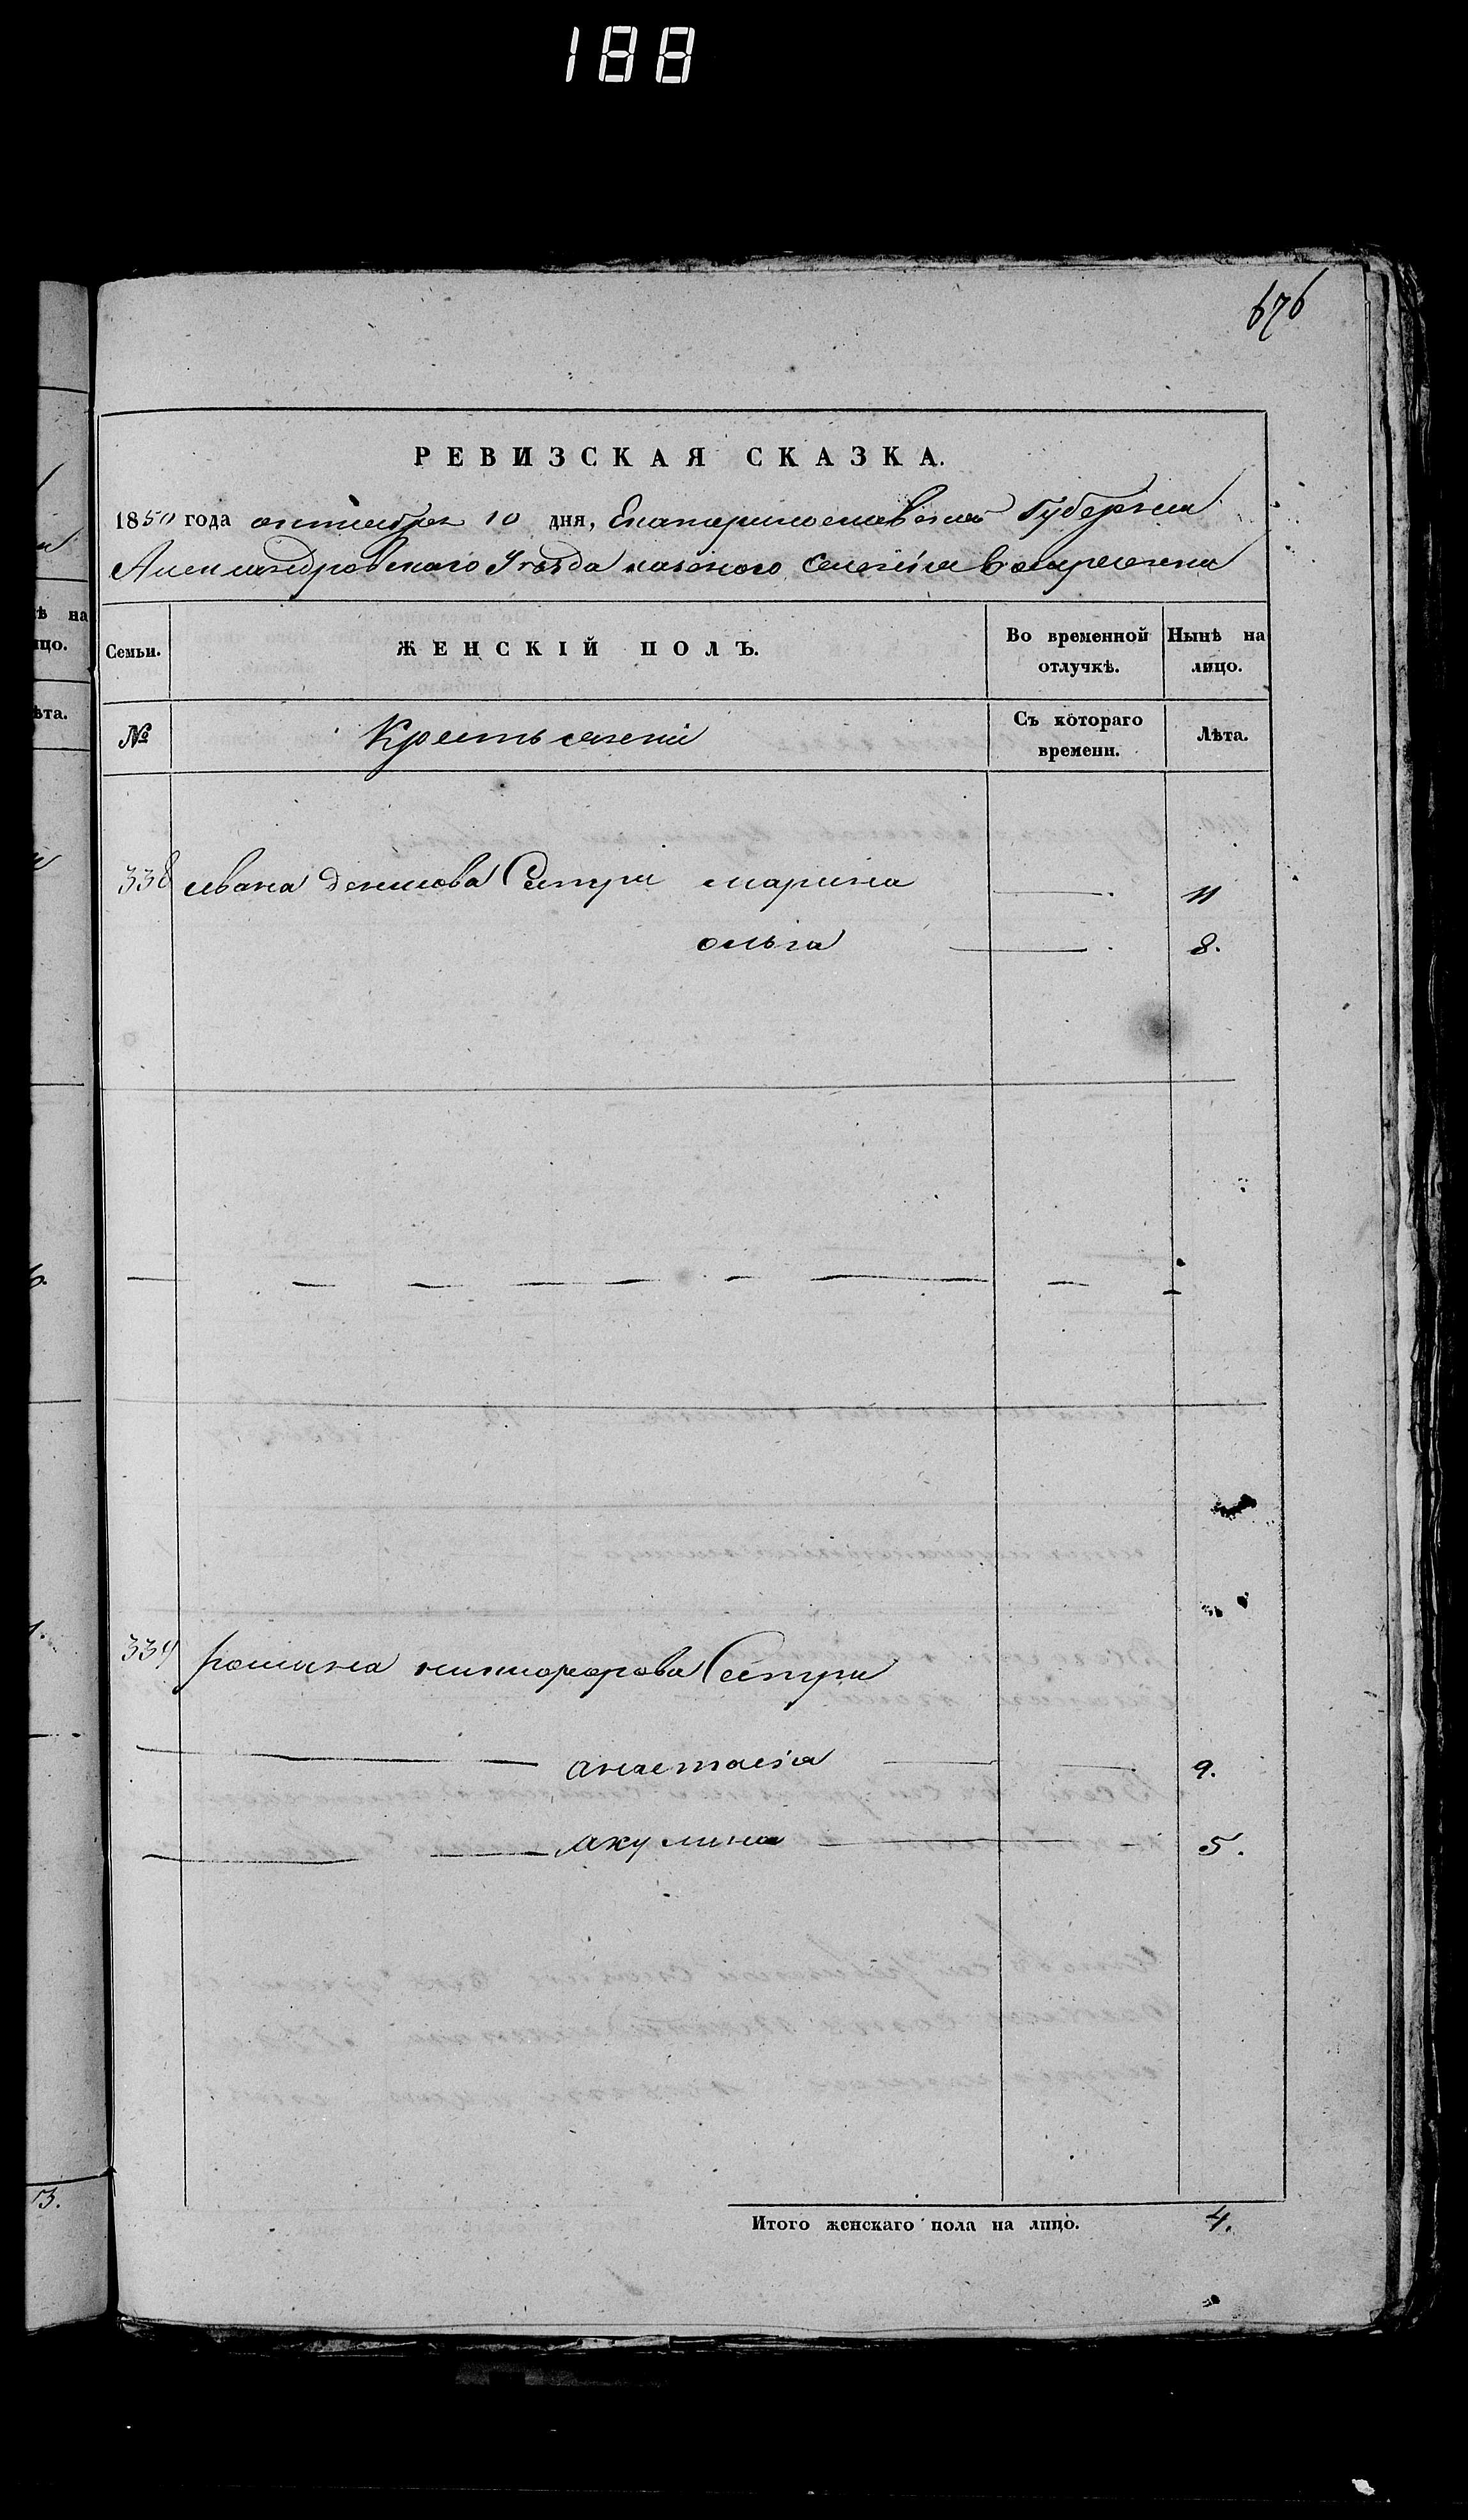 188
676
РЕВИЗСКАЯ СКАЗКА.
1850 года октября 10 дня, Екатеринославской Губернии
Александровского Уезда казеного Селения Воскресенки
Семьи. ЖЕНСКІЙ ПОЛЪ. Во временной отлучкѣ. Нынѣ на лицо.
№ Крестьянский Съ котораго времени. Лѣта.
338 ивана денисова Сестри марина 11
ольга 8.
339 романа никифорова Сестри
анастасія 9.
акулина 5.
Итого женскаго пола на лицо. 4.